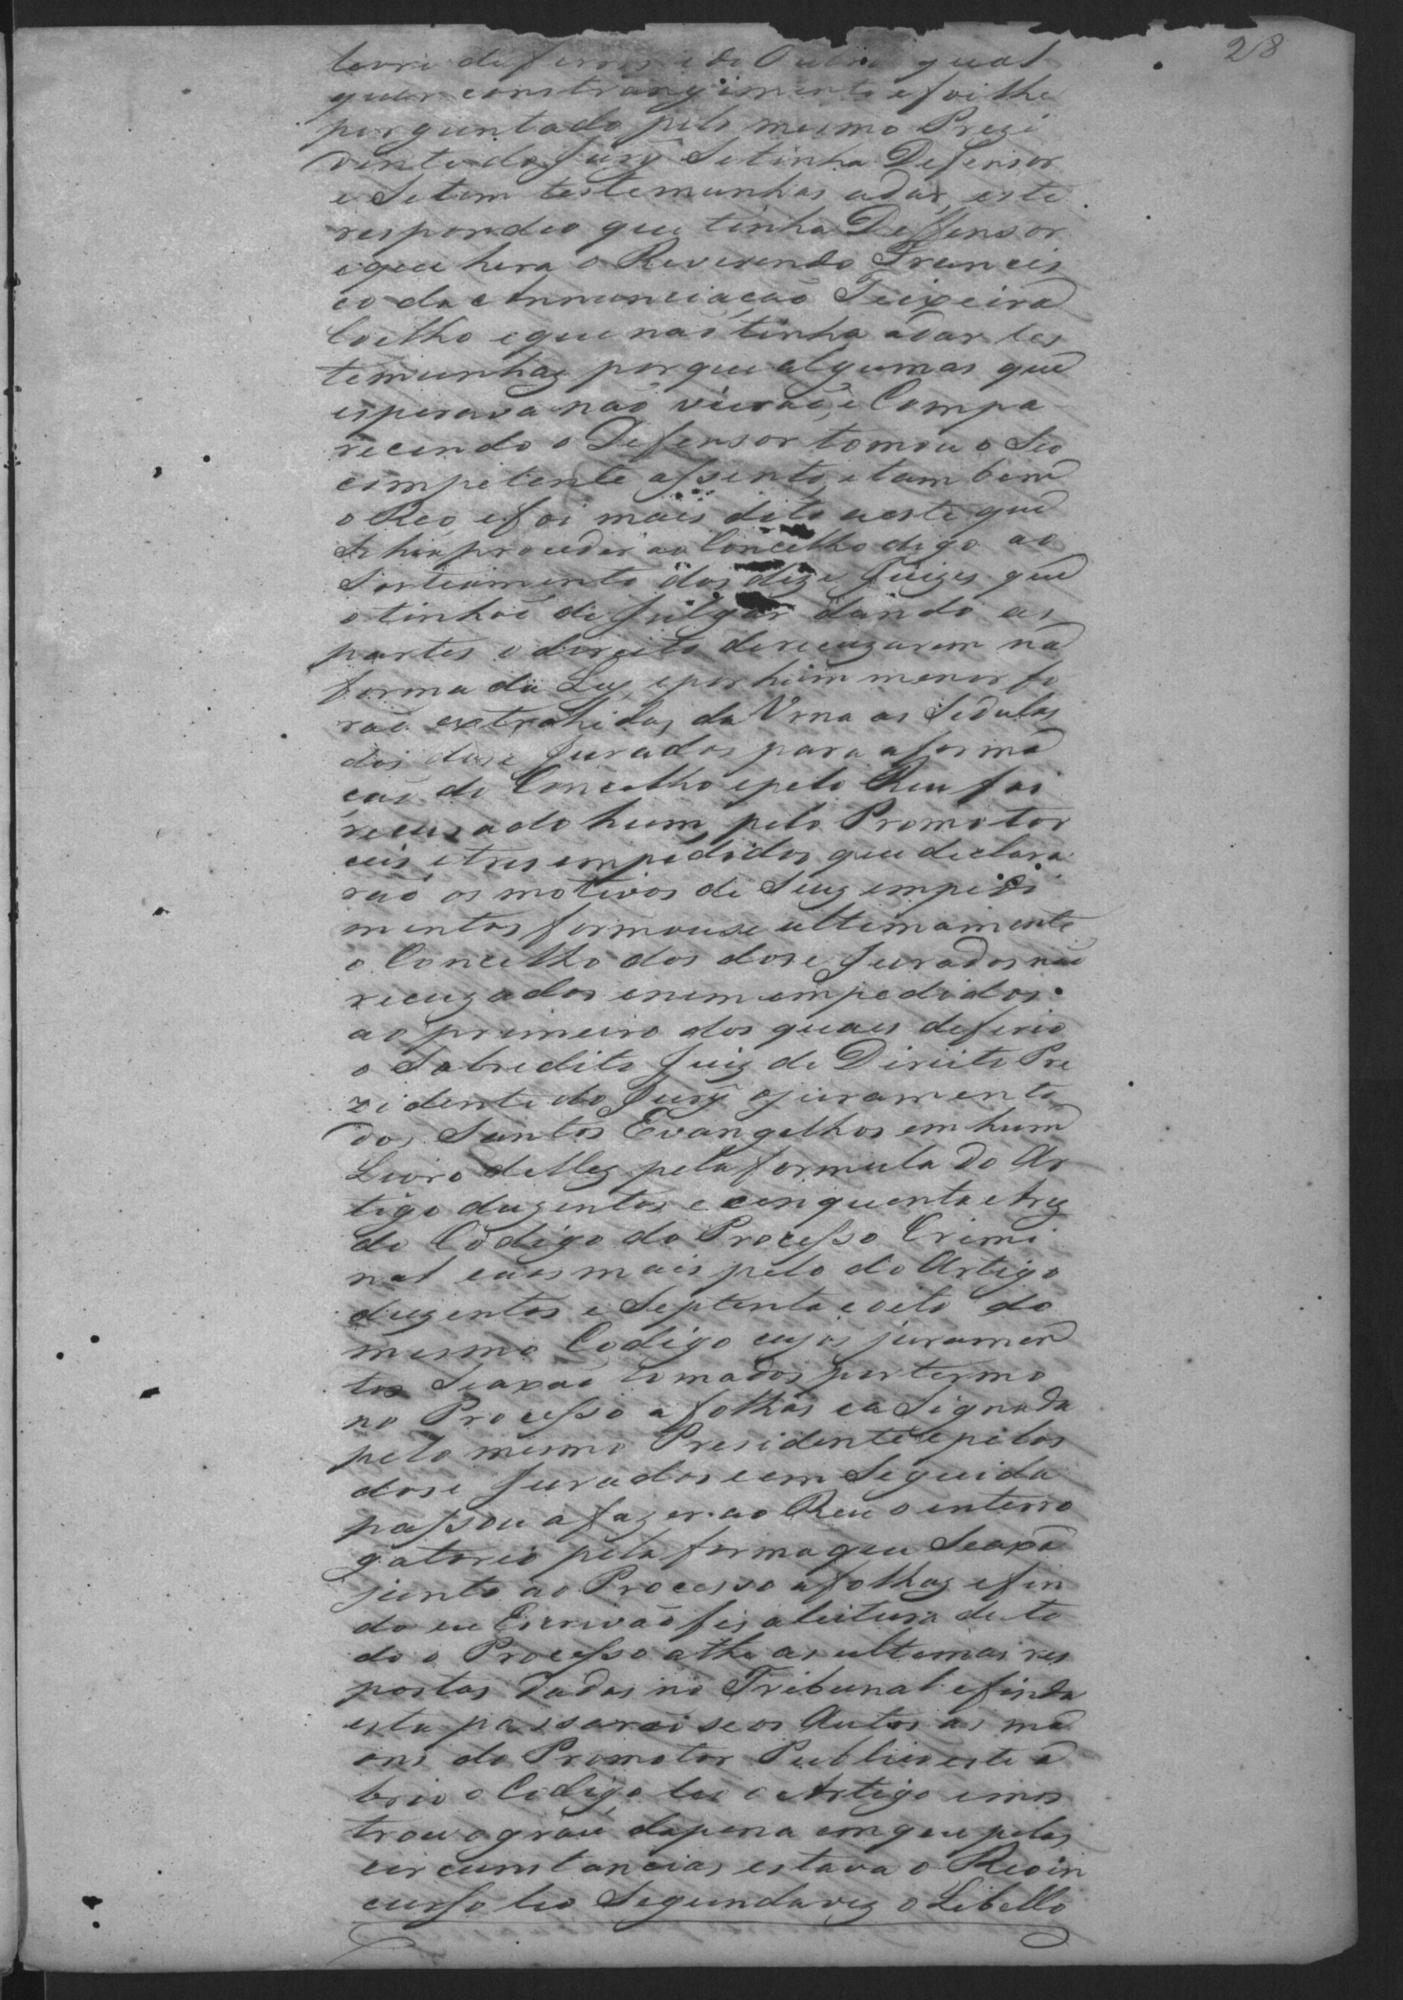 28
livre de ferros e de outro qual
quer constrangimento e foi lhe
perguntado pelo mesmo Prezi
dente do Jury Se tinha Defensor
e Se tem testemunhas adar, este
respondeo que tinha Deffensor
eque hera o Reverendo Francis
co da Annunciação Teixeira
Coelho eque não tinha adar tes
temunhas porque algumas que
esperava não vierão, e Compa
recendo o Defensor tomou o Seo
competente assento, etambem
o Reo, efoi mais dito aeste que
Se hia proceder ao Concelho digo ao
Sorteamento dos doze Juizes que
otinhão de julgar dando as
partes o direito derecuzarem na
forma da Ley, epor hum menor fo
rão extrahidas da Urna as Sedulas
dos dose Jurados para aforma
ção do Concelho epelo Reu foi
recusado hum, pelo Promotor
ceis, etres empedidos que declara
rão os motivos de Seuz empedi
mentos formouse ultimamente
o Concelho dos dose Jurados não
recuzados enem empedidos
ao primeiro dos quaes deferio
o Sobredito Juiz de Direito Pre
zidente do Jury ojuramento
dos Santos Evangelhos em hum
Livro delles pela formula do Ar
tigo duzentos e cinquenta etrez
do Codigo do Processo Crimi
nal eaos mais pelo do Artigo
duzentos e Septenta eoito do
mesmo Codigo cujos juramen
tos Seaxão tomados por termo
no Processo afolhas eaSignada
pelo mesmo Presidente epelos
dose Jurados eem Seguida
passou afazer ao Reu o interro
gatorio pela forma que Seaxa
junto ao Processo afolhas efin
do eu Escrivão fis aleitura de to
do o Processo athe as ultimas res
postas dadas no Tribunal efinda
esta passarãose os Autos as ma
ons do Promotor Publico este a
brio o Codigo leo o Artigo emos
trou ográu dapena emque pelas
circumstancias estava o Reo in
curso leo Segunda vez o Libello